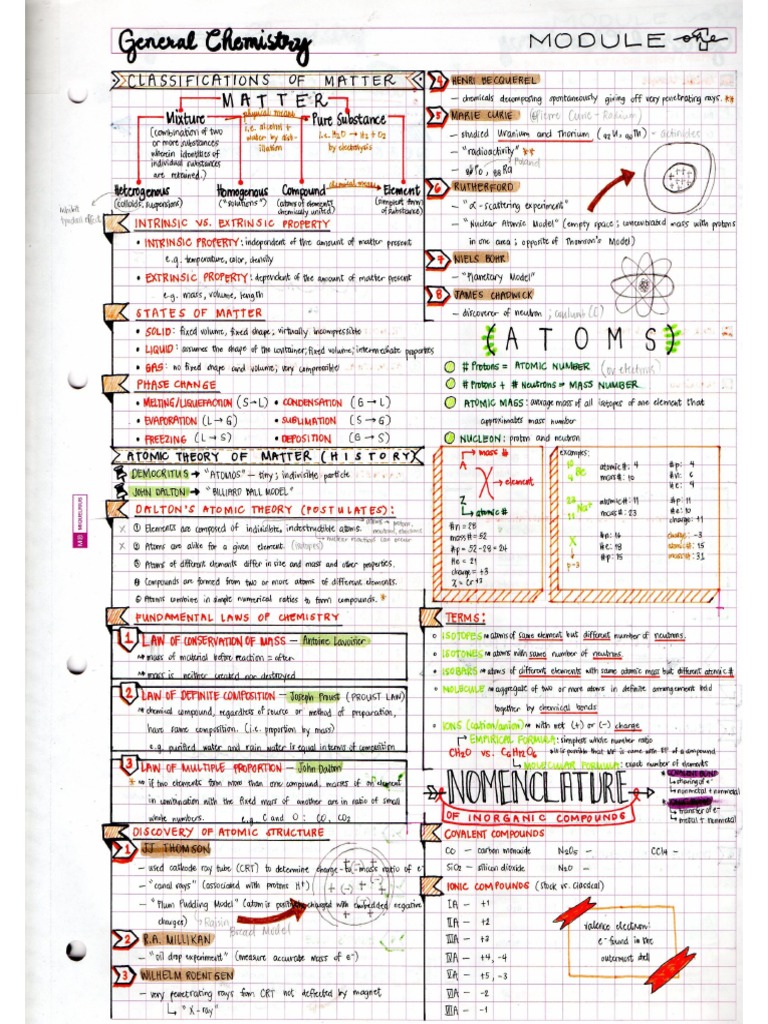 General Chemistry
MODULE one
CLASSIFICATIONS OF MATTER
MATTER
physical means
Mixture
Pure Substance
(combination of two
or more substances
wherein identities of
individual substances
are retained.)
i.e. alcohol +
water by dist-
illation
i.e. H2O → H2 + O2
by electrolysis
chemical means
Heterogenous
(colloids, suspensions)
Homogenous
("solutions")
Compound
(atoms of elements
chemically united)
Element
(simplest form
of substance)
INTRINSIC VS. EXTRINSIC PROPERTY
• INTRINSIC PROPERTY: independent of the amount of matter present
e.g. temperature, color, density
• EXTRINSIC PROPERTY: dependent of the amount of matter present
e.g. mass, volume, length
STATES OF MATTER
• SOLID: fixed volume, fixed shape; virtually incompressible
• LIQUID: assumes the shape of the container; fixed volume; intermediate properties
• GAS: no fixed shape and volume; very compressible
PHASE CHANGE
• MELTING/LIQUEFACTION (S→L) • CONDENSATION (G→L)
• EVAPORATION (L→G) • SUBLIMATION (S→G)
• FREEZING (L→S) • DEPOSITION (G→S)
ATOMIC THEORY OF MATTER (HISTORY)
DEMOCRITUS → "ATOMOS" - tiny; indivisible particle
JOHN DALTON → "BILLIARD BALL MODEL"
DALTON'S ATOMIC THEORY (POSTULATES):
x ① Elements are composed of indivisible, indestructible atoms.
nuclear reactions can occur
x ② Atoms are alike for a given element. (isotopes)
③ Atoms of different elements differ in size and mass and other properties.
④ Compounds are formed from two or more atoms of different elements.
⑤ Atoms combine in simple numerical ratios to form compounds. *
FUNDAMENTAL LAWS OF CHEMISTRY
1 LAW OF CONSERVATION OF MASS - Antoine Lavoisier
mass of material before reaction = after
mass is neither created nor destroyed
2 LAW OF DEFINITE COMPOSITION - Joseph Proust (PROUST LAW)
chemical compound, regardless of source or method of preparation,
have same composition. (i.e. proportion by mass)
e.g. purified water and rain water is equal in terms of composition
3 LAW OF MULTIPLE PROPORTION - John Dalton
* if two elements form more than one compound, masses of an element
in combination with the fixed mass of another are in ratio of small
whole numbers. e.g. C and O : CO, CO2
DISCOVERY OF ATOMIC STRUCTURE
1 JJ THOMSON
- used cathode ray tube (CRT) to determine charge-to-mass ratio of e-
- "canal rays" (associated with protons H+)
- "Plum Pudding Model" (atom is positively charged with embedded negative
charges) Raisin
Bread Model
2 R.A. MILLIKAN
- "oil drop experiment" (measure accurate mass of e-)
3 WILHELM ROENTGEN
- very penetrating rays from CRT not deflected by magnet
"X-ray"
4 HENRI BECQUEREL
- chemicals decomposing spontaneously giving off very penetrating rays. **
5 MARIE CURIE
- studied Uranium and Thorium (92U, 90Th) - actinides
- "radioactivity" **
84Po, 88Ra
6 RUTHERFORD
- "α-scattering experiment"
- "Nuclear Atomic Model" (empty space; concentrated mass with protons
in one area; opposite of Thomson's Model)
7 NIELS BOHR
- "Planetary Model"
8 JAMES CHADWICK
- discoverer of neutron;
(ATOMS)
# Protons = ATOMIC NUMBER (or electrons)
# Protons + # Neutrons = MASS NUMBER
ATOMIC MASS: average mass of all isotopes of one element that
approximates mass number
NUCLEON: proton and neutron
mass #
A
X → element
Z
atomic #
#n = 28
mass # = 52
#p = 52-28 = 24
#e = 21
charge = +3
X = Cr+3
examples:
10
Be
4
atomic #: 4
mass #: 10
#p: 4
#n: 6
#e: 4
23
Na+
11
atomic #: 11
mass #: 23
#p: 11
#n: 12
#e: 10
charge: +1
X
p-3
#n: 16
#e: 18
#p: 15
charge: -3
atomic #: 15
mass #: 31
TERMS:
ISOTOPES atoms of same element but different number of neutrons.
ISOTONES atoms with same number of neutrons.
ISOBARS atoms of different elements with same atomic mass but different atomic #
MOLECULE aggregate of two or more atoms in definite arrangement held
together by chemical bonds
IONS (cation/anion) with net (+) or (-) charge
EMPIRICAL FORMULA: simplest whole number ratio
CH2O vs. C6H12O6 it is possible that MF is same with EF of a compound
MOLECULAR FORMULA: exact number of elements
NOMENCLATURE
OF INORGANIC COMPOUNDS
COVALENT BOND
sharing of e-
nonmetal + nonmetal
transfer of e-
metal + nonmetal
COVALENT COMPOUNDS
CO - carbon monoxide N2O5 - CCl4 -
SiO2 - silicon dioxide N2O -
IONIC COMPOUNDS (Stock vs. Classical)
IA - +1
IIA - +2
IIIA - +3
IVA - +4, -4
VA - +5, -3
VIA - -2
VIIA - -1
valence electron:
e- found in the
outermost shell